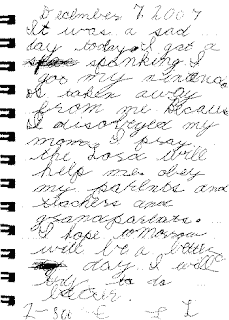 December 7, 2007
It was a sad
day today. I got a
spanking. I
got my nintendo
is taken away
from me because
I disobeyed my
mom. I pray
the Lord will
help me obey
my parents and
teachers and
grandparents.
I hope tomorrow
will be a better
day. I will
try to do
better.